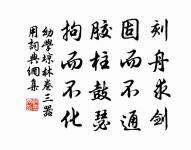 刻舟求剑
固而不通
胶柱鼓瑟
拘而不化
幼学琼林卷三器
用词典网集